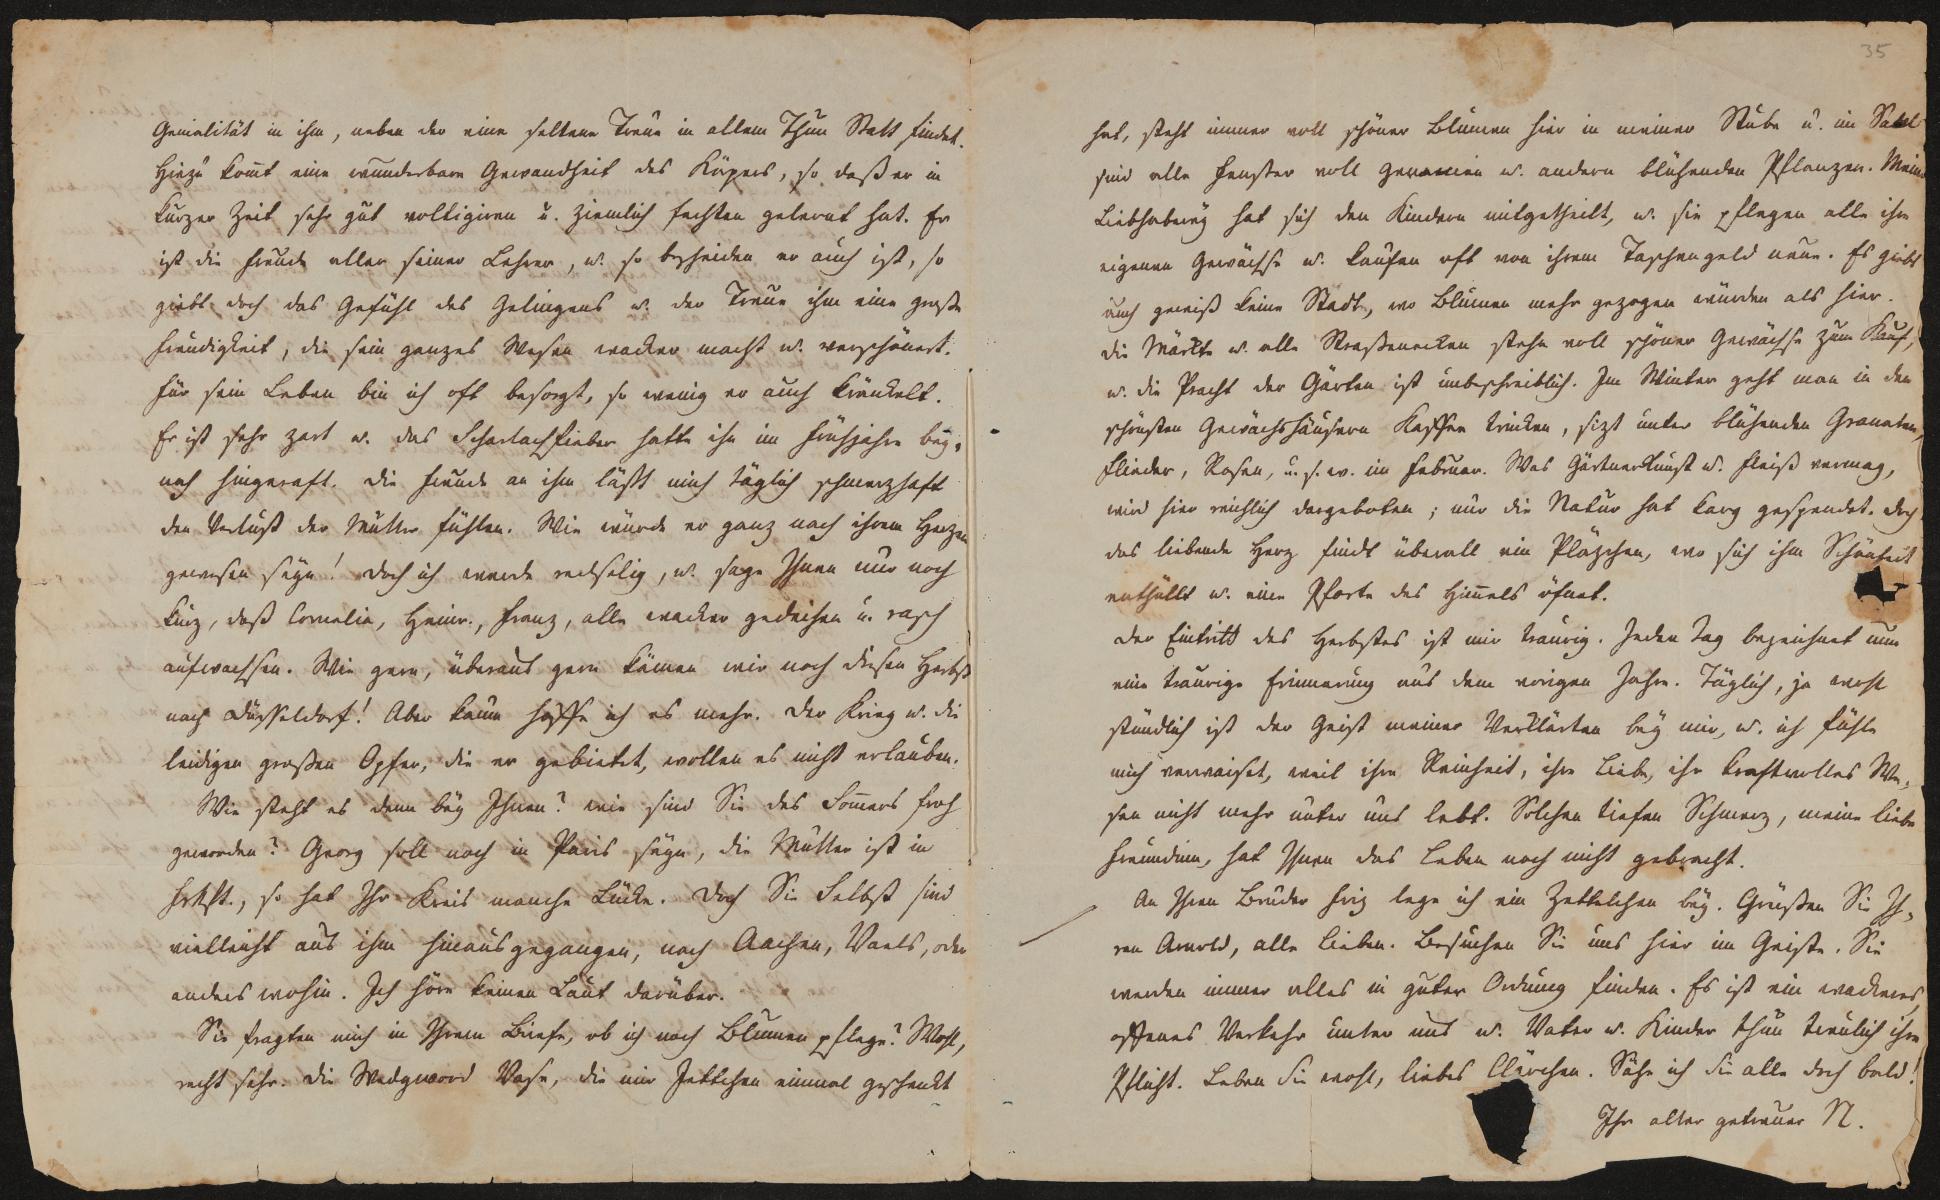 Genialität in ihm, neben der eine seltene Treue in allem Thun Statt findet.
Hiezu kom̄t eine wunderbare Gewandheit des Köpers, so daß er in
kurzer Zeit sehr gut voltigiren u. ziemlich fechten gelernt hat. Er
ist die Freude aller seiner Lehrer, u. so bescheiden er auch ist, so
giebt doch das Gefühl des Gelingens u. der Treue ihm eine große
Freudigkeit, die sein ganzes Wesen wacker macht u. verschönert.
Für sein Leben bin ich oft besorgt, so wenig er auch kränkelt.
Er ist sehr zart u. das Scharlachfieber hatte ihn im Frühjahre bey-
nah hingeraft. Die Freude an ihm läßt mich täglich schmerzhaft
den Verlust der Mutter fühlen. Wie würde er ganz nach ihrem Herzen
gewesen seyn! Doch ich werde redselig, u. sage Ihnen nur noch
kurz, daß Cornelia, Heinr., Franz, alle wacker gedeihen u. rasch
aufwachsen. Wie gern, überaus gern kämen wir noch diesen Herbst
nach Düsseldorf! Aber kaum hoffe ich es mehr. Der Krieg u. die
leidigen großen Opfer, die er gebietet, wollen es nicht erlauben.
Wie steht es denn bey Ihnen? wie sind Sie des Som̄ers froh
geworden? Georg soll noch in Paris seyn, die Mutter ist in
Frkft., so hat Ihr Kreis manche Lücke. Doch Sie Selbst sind
vielleicht aus ihm hinausgegangen, nach Aachen, Vaels, oder
anders wohin. Ich höre keinen Laut darüber.
Sie fragten mich in Ihrem Briefe, ob ich noch Blumen pflege? Wohl,
recht sehr. Die Wedgwood Vase, die mir Jettchen einmal geschenkt
35
hat, steht immer voll schöner Blumen hier in meiner Stube u. im Saal
sind alle Fenster voll Geranien u. andern blühenden Pflanzen. Meine
Liebhaberey hat sich den Kindern mitgetheilt, u. sie pflegen alle ihre
eigenen Gewächse u. kaufen oft von ihrem Taschengeld neue. Es giebt
auch gewiß keine Stadt, wo Blumen mehr gezogen würden als hier.
Die Märkte u. alle Straßenecken stehn voll schöner Gewächse zum Kauf,
u. die Pracht der Gärten ist unbeschreiblich. Im Winter geht man in den
schönsten Gewächshäusern Kaffee trinken, sizt unter blühenden Granaten,
Flieder, Rosen, u. s. w. im Februar. Was Gärtnerkunst u. Fleiß vermag,
wird hier reichlich dargeboten; nur die Natur hat karg gespendet. Doch
das liebende Herz findt überall ein Pläzchen, wo sich ihm Schönheit
enthüllt u. eine Pforte des Him̄els öfnet.
Der Eintritt des Herbstes ist mir traurig. Jeden Tag bezeichnet nun
eine traurige Erinnerung aus dem vorigen Jahre. Täglich, ja wohl
stündlich ist der Geist meiner Verklärten bey mir, u. ich fühle
mich verwaiset, weil ihre Reinheit, ihre Liebe, ihr kraftvolles We-
sen nicht mehr unter uns lebt. Solchen tiefen Schmerz, meine liebe
Freundinn, hat Ihnen das Leben noch nicht gebracht.
An Ihren Bruder Friz lege ich ein Zettelchen bey. Grüßen Sie Ih-
ren Arnold, alle Lieben. Besuchen Sie uns hier im Geiste. Sie
werden immer alles in guter Ordnung finden. Es ist ein wackeres
offenes Verkehr unter uns u. Vater u. Kinder thun treulich ihre
Pflicht. Leben Sie wohl, liebes Clärchen. Sähe ich Sie alle doch bald!
Ihr alter getreuer N.